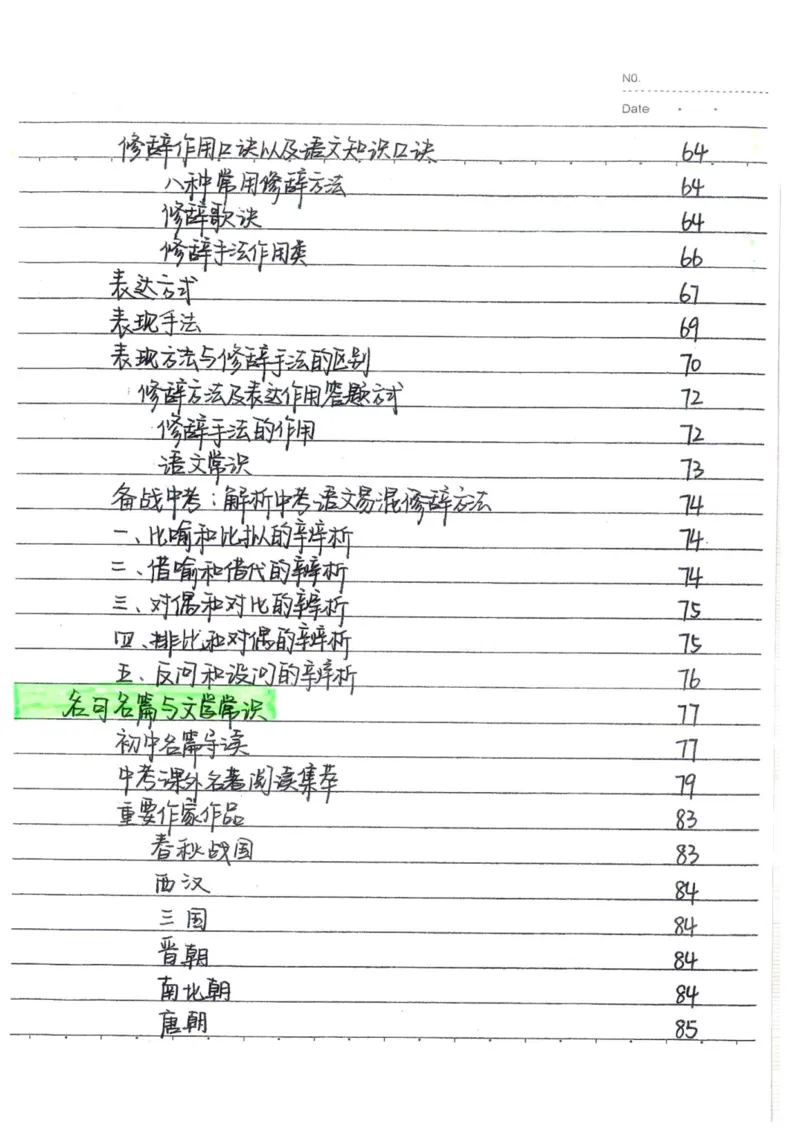 NO.
Date
修辞作用口诀以及语文知识口诀 64
八种常用修辞方法 64
修辞歌诀 64
修辞手法作用类 66
表达方式 67
表现手法 69
表现方法与修辞手法的区别 70
修辞方法及表达作用答题方式 72
修辞手法的作用 72
语文常识 73
备战中考:解析中考语文易混修辞方法 74
一、比喻和比拟的辨析 74
二、借喻和借代的辨析 74
三、对偶和对比的辨析 75
四、排比和对偶的辨析 75
五、反问和设问的辨析 76
名句名篇与文学常识 77
初中名篇导读 77
中考课外名著阅读集萃 79
重要作家作品 83
春秋战国 83
西汉 84
三国 84
晋朝 84
南北朝 84
唐朝 85